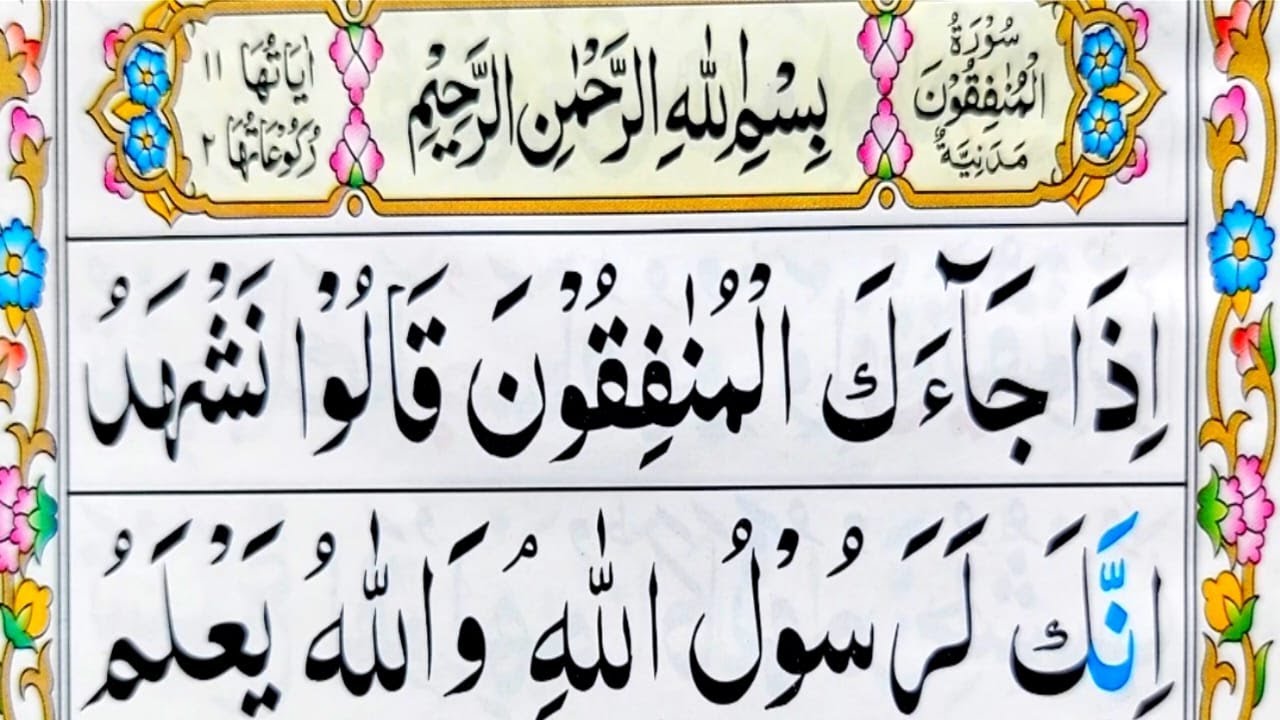 سُوْرَةُ
الْمُنٰفِقُوْنَ
مَدَنِيَّةٌ
بِسْمِ اللّٰهِ الرَّحْمٰنِ الرَّحِيْمِ
اٰيَاتُهَا ١١
رُكُوْعَاتُهَا ٢
اِذَا جَآءَكَ الْمُنٰفِقُوْنَ قَالُوْا نَشْهَدُ
اِنَّكَ لَرَسُوْلُ اللّٰهِ ۘ وَاللّٰهُ يَعْلَمُ